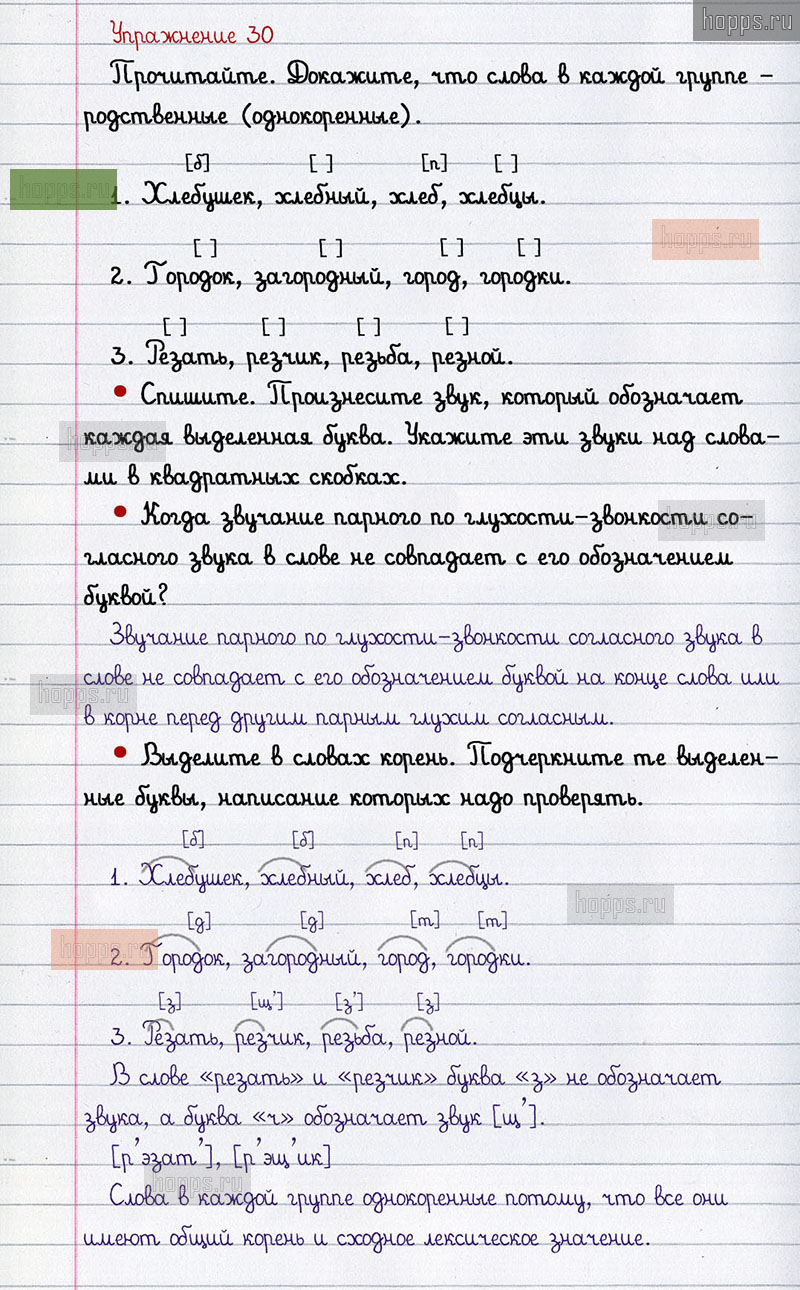 hopps.ru
Упражнение 30
Прочитайте. Докажите, что слова в каждой группе –
родственные (однокоренные).
[б] [ ] [п] [ ]
hopps.ru
1. Хлебушек, хлебный, хлеб, хлебцы.
hopps.ru
[ ] [ ] [ ] [ ]
2. Городок, загородный, город, городки.
[ ] [ ] [ ] [ ]
3. Резать, резчик, резьба, резной.
• Спишите. Произнесите звук, который обозначает
hopps.ru
каждая выделенная буква. Укажите эти звуки над слова-
ми в квадратных скобках.
• Когда звучание парного по глухости-звонкости со-
hopps.ru
гласного звука в слове не совпадает с его обозначением
буквой?
Звучание парного по глухости-звонкости согласного звука в
слове не совпадает с его обозначением буквой на конце слова или
hopps.ru
в корне перед другим парным глухим согласным.
• Выделите в словах корень. Подчеркните те выделен-
ные буквы, написание которых надо проверять.
[б] [б] [п] [п]
1. Хлебушек, хлебный, хлеб, хлебцы.
hopps.ru
[д] [д] [т] [т]
hopps.ru
2. Городок, загородный, город, городки.
[з] [щ'] [з'] [з]
3. Резать, резчик, резьба, резной.
В слове «резать» и «резчик» буква «з» не обозначает
звука, а буква «ч» обозначает звук [щ'].
[р'эзат'], [р'эщ'ик]
hopps.ru
Слова в каждой группе однокоренные потому, что все они
имеют общий корень и сходное лексическое значение.